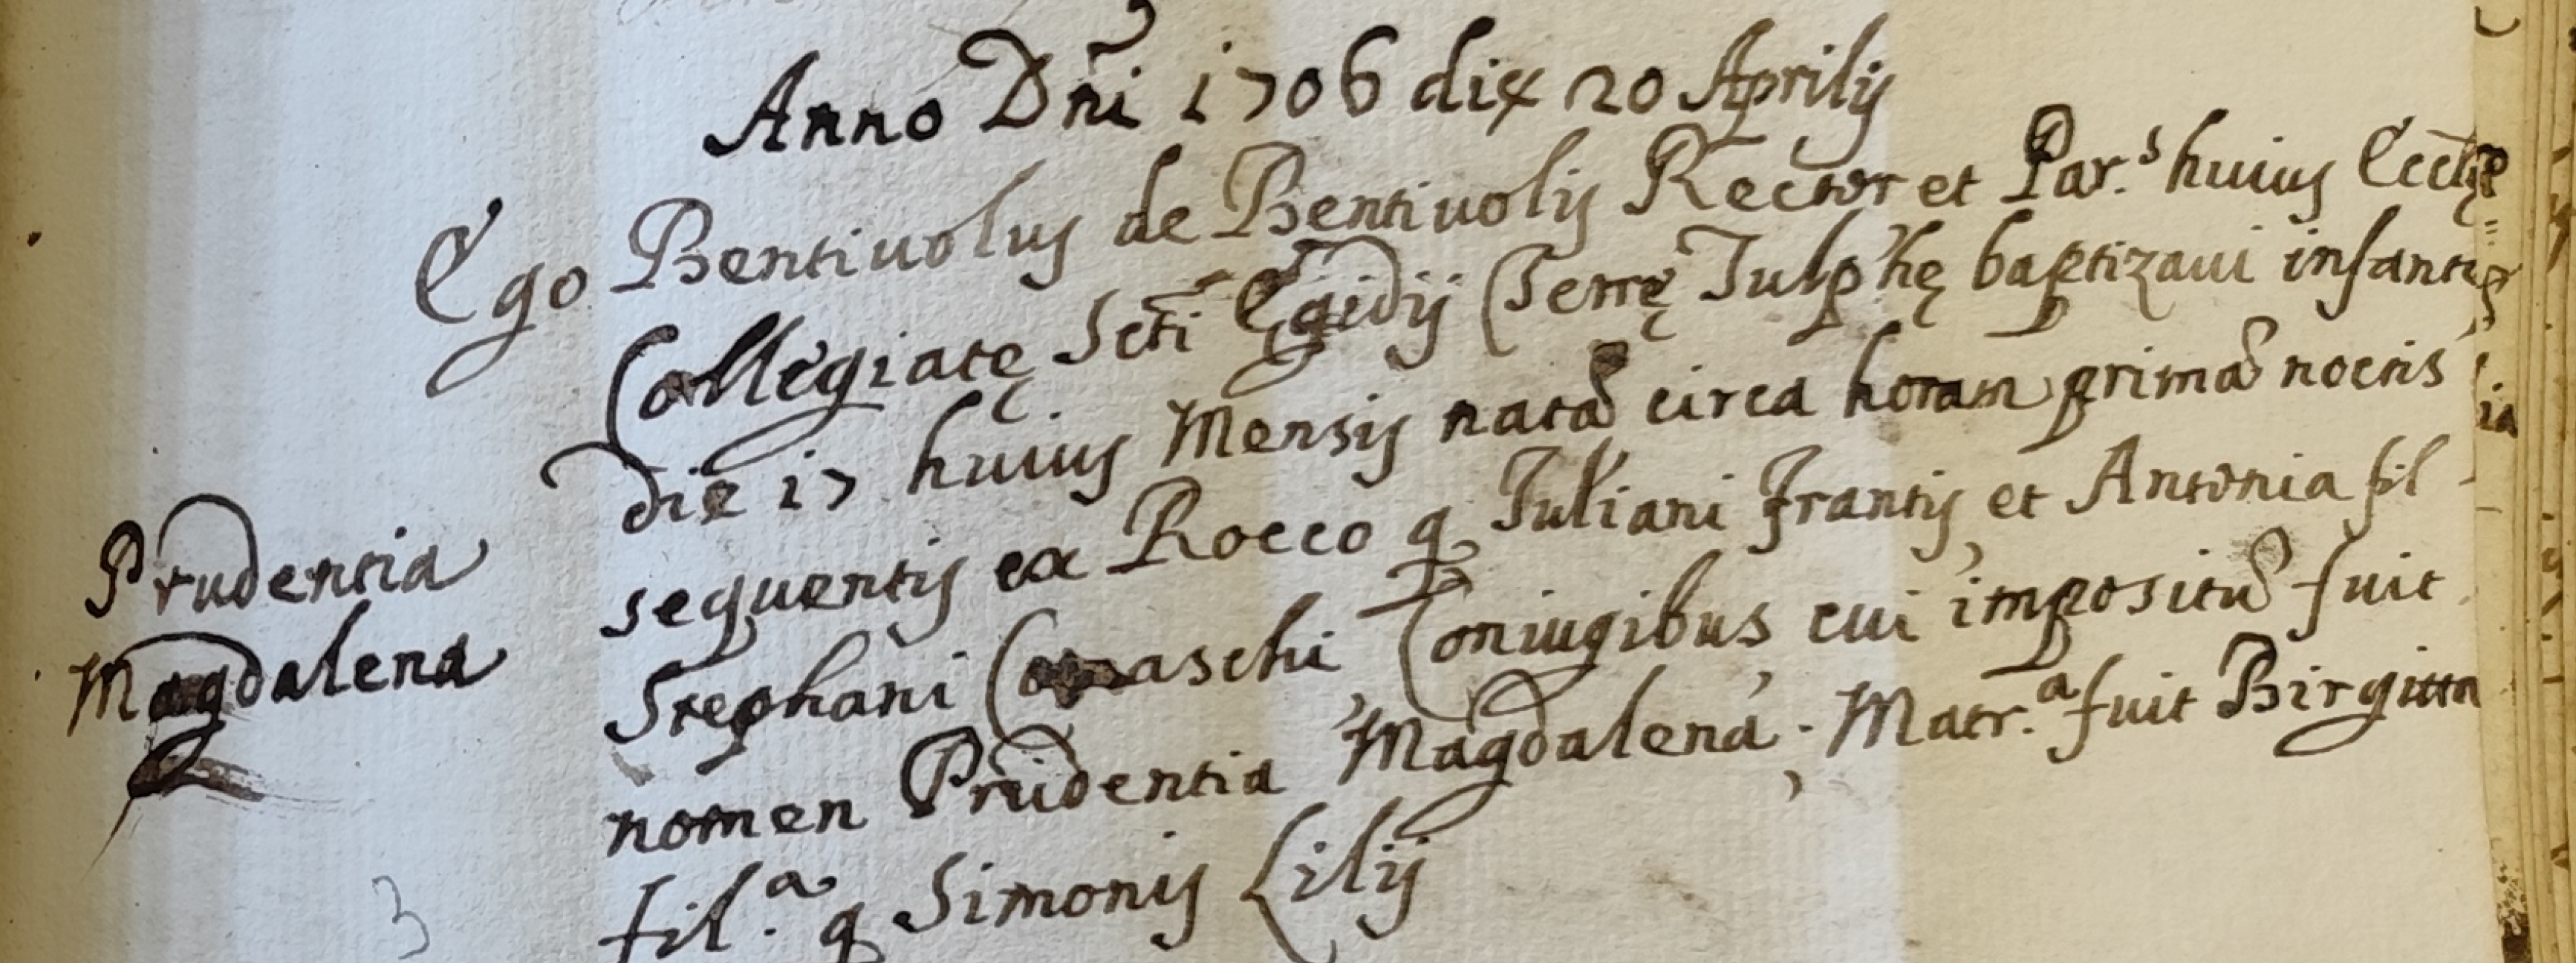 Anno Dñi 1706 die 20 Aprilis
Ego Bentiuolus de Bentiuolis Rector et Par.s huius Eccłę
Collegiatę Scti Egidij Terrę Tulphę baptizaui infantẽ
die 17 huius Mensis natã circa horam primã noctis
sequentis ex Rocco q Iuliani Frantis et Antonia fil
Stephani Coniugibus cui impositũ fuit
nomen Prudentia Magdalena. Matr.a fuit Birgitta
fil.a q Simonis Lilij
Prudentia
Magdalena
3